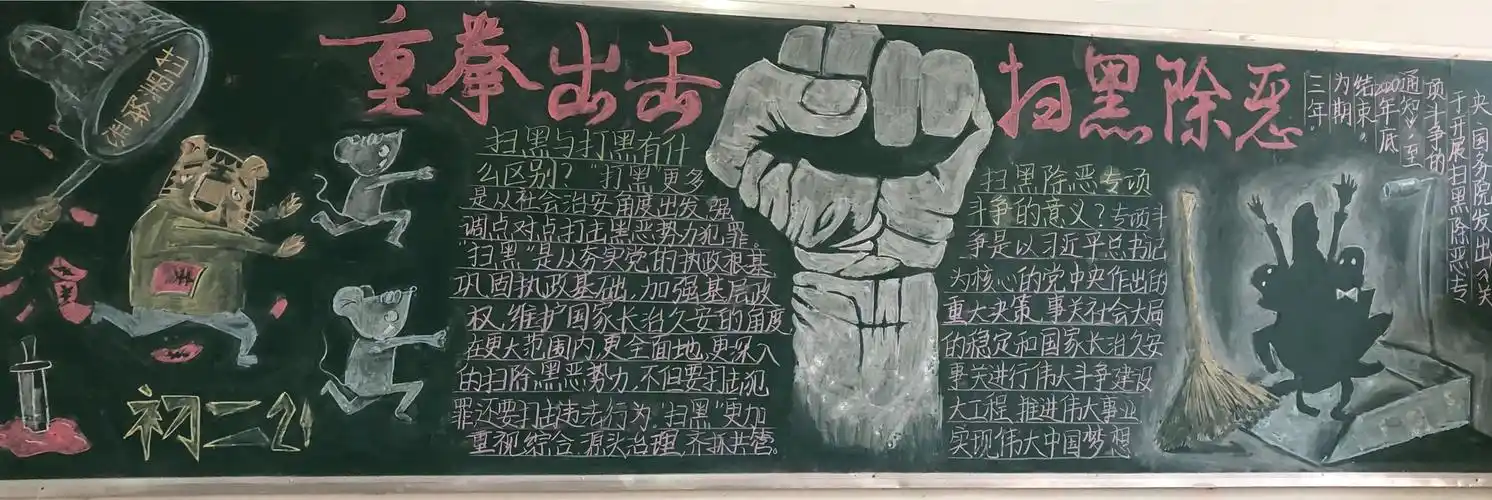 重拳出击
扫黑除恶
扫黑与打黑有什
么区别？"打黑"更多
是从社会治安角度出发,强
调点对点打击黑恶势力犯罪。
"扫黑"是从夯实党的执政根基
巩固执政基础,加强基层政
权,维护国家长治久安的角度
在更大范围内,更全面地,更深入
的扫除黑恶势力,不但要打击犯
罪还要打击违法行为。"扫黑"更加
重视综合,源头治理,齐抓共管。
扫黑除恶专项
斗争的意义？专项斗
争是以习近平总书记
为核心的党中央作出的
重大决策,事关社会大局
的稳定和国家长治久安
事关进行伟大斗争建设
大工程,推进伟大事业
实现伟大中国梦想
央、国务院发出《关
于开展扫黑除恶专
项斗争的
通知》,至
2020年底
结束。
为期
三年。
初二21